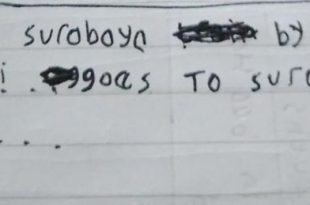 suroboya by
goas TO suro
...